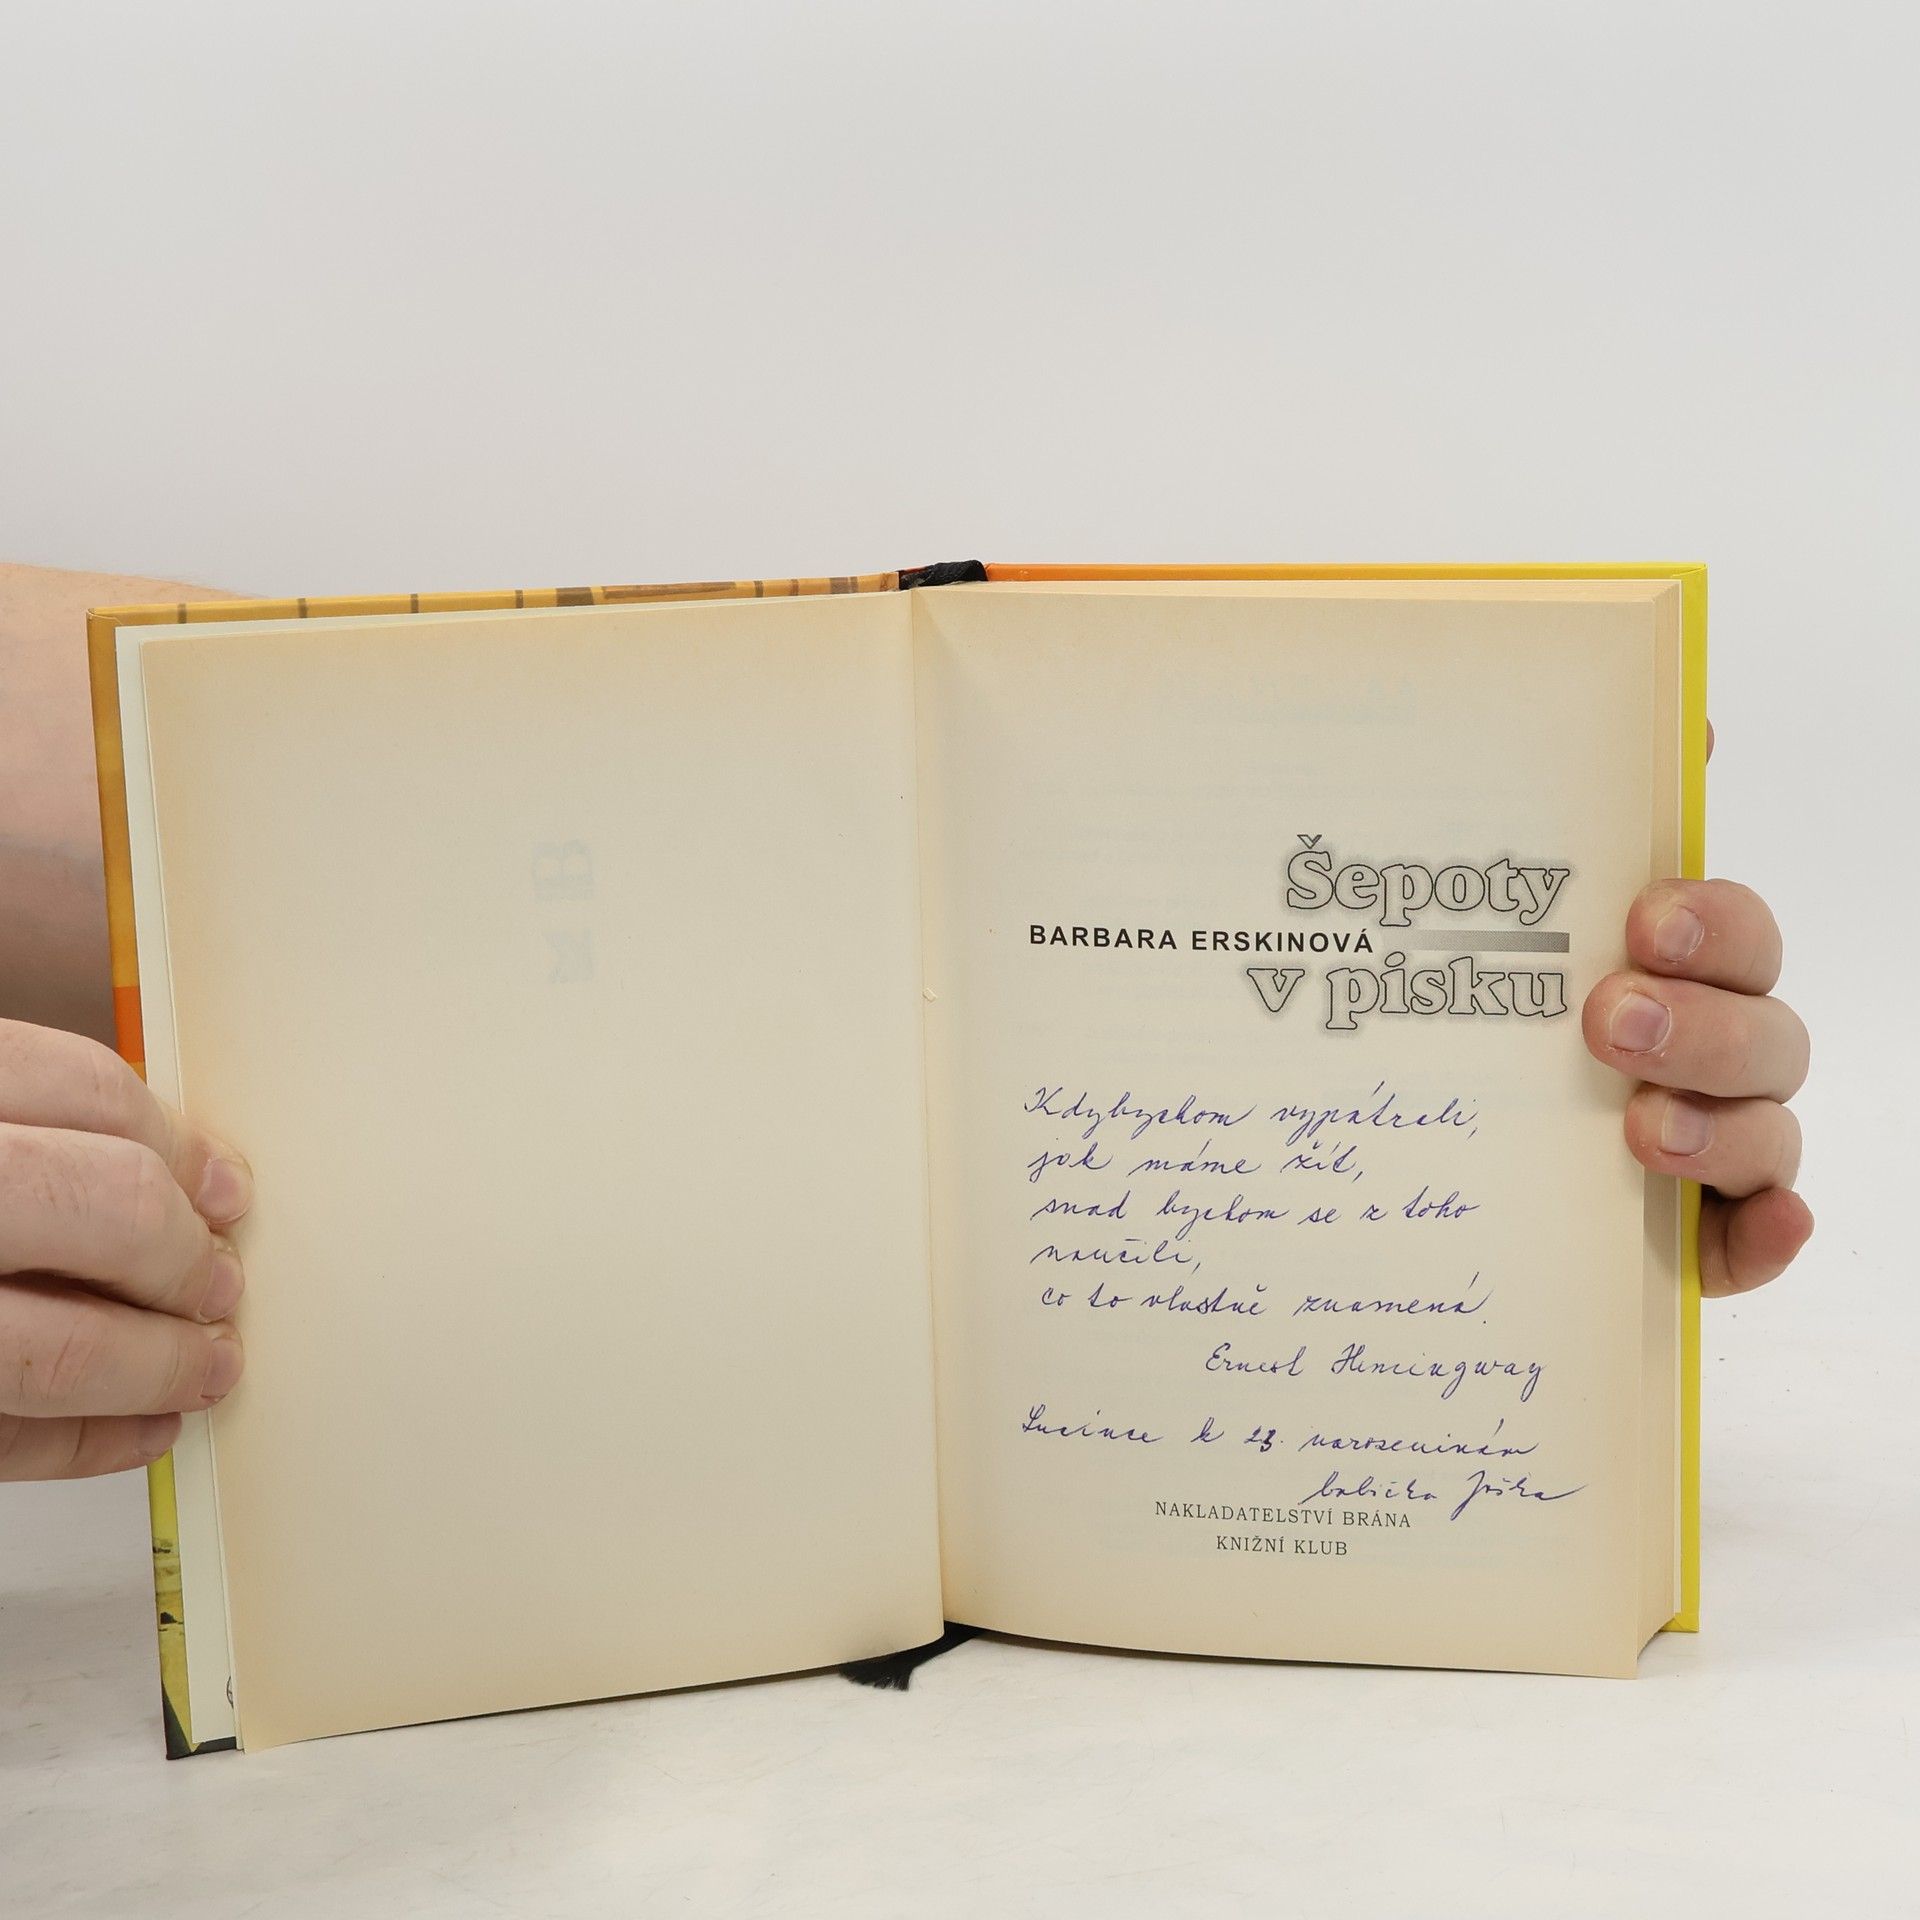 Šepoty
BARBARA ERSKINOVÁ
v písku
Kdybychom vypátrali,
jak máme žít,
snad bychom se z toho
naučili,
co to vlastně znamená.
Ernest Hemingway
Lucince k 23. narozeninám
babička Jiřka
NAKLADATELSTVÍ BRÁNA
KNIŽNÍ KLUB